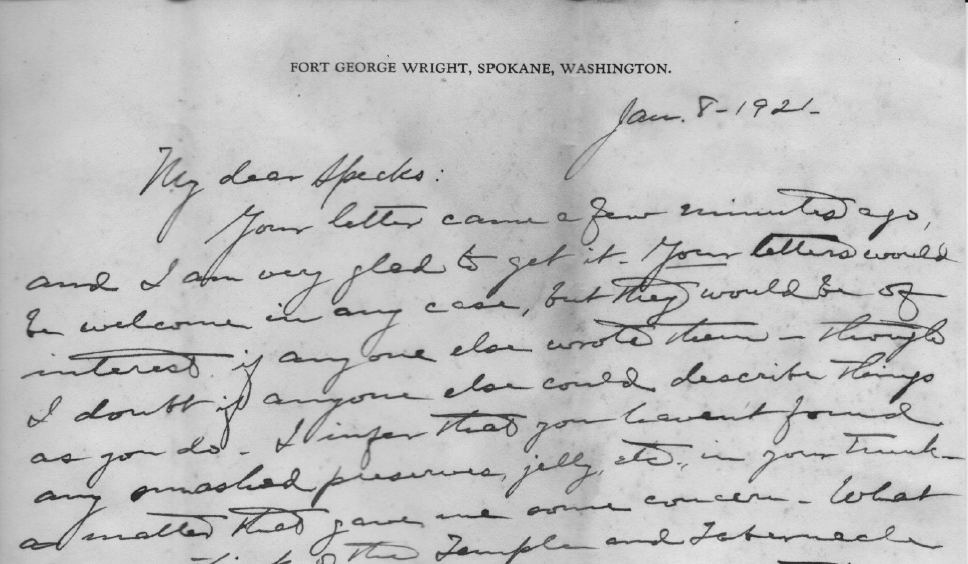 FORT GEORGE WRIGHT, SPOKANE, WASHINGTON.
Jan. 8-1921-
My dear Specks:
Your letter came a few minutes ago,
and I am very glad to get it. Your letters would
be welcome in any case, but they would be of
interest if anyone else wrote them - though
I doubt if anyone else could describe things
as you do. I infer that you haven't found
any smashed preserves, jelly, etc., in your trunk -
a matter that gave me some concern. What
the Temple and Tabernacle